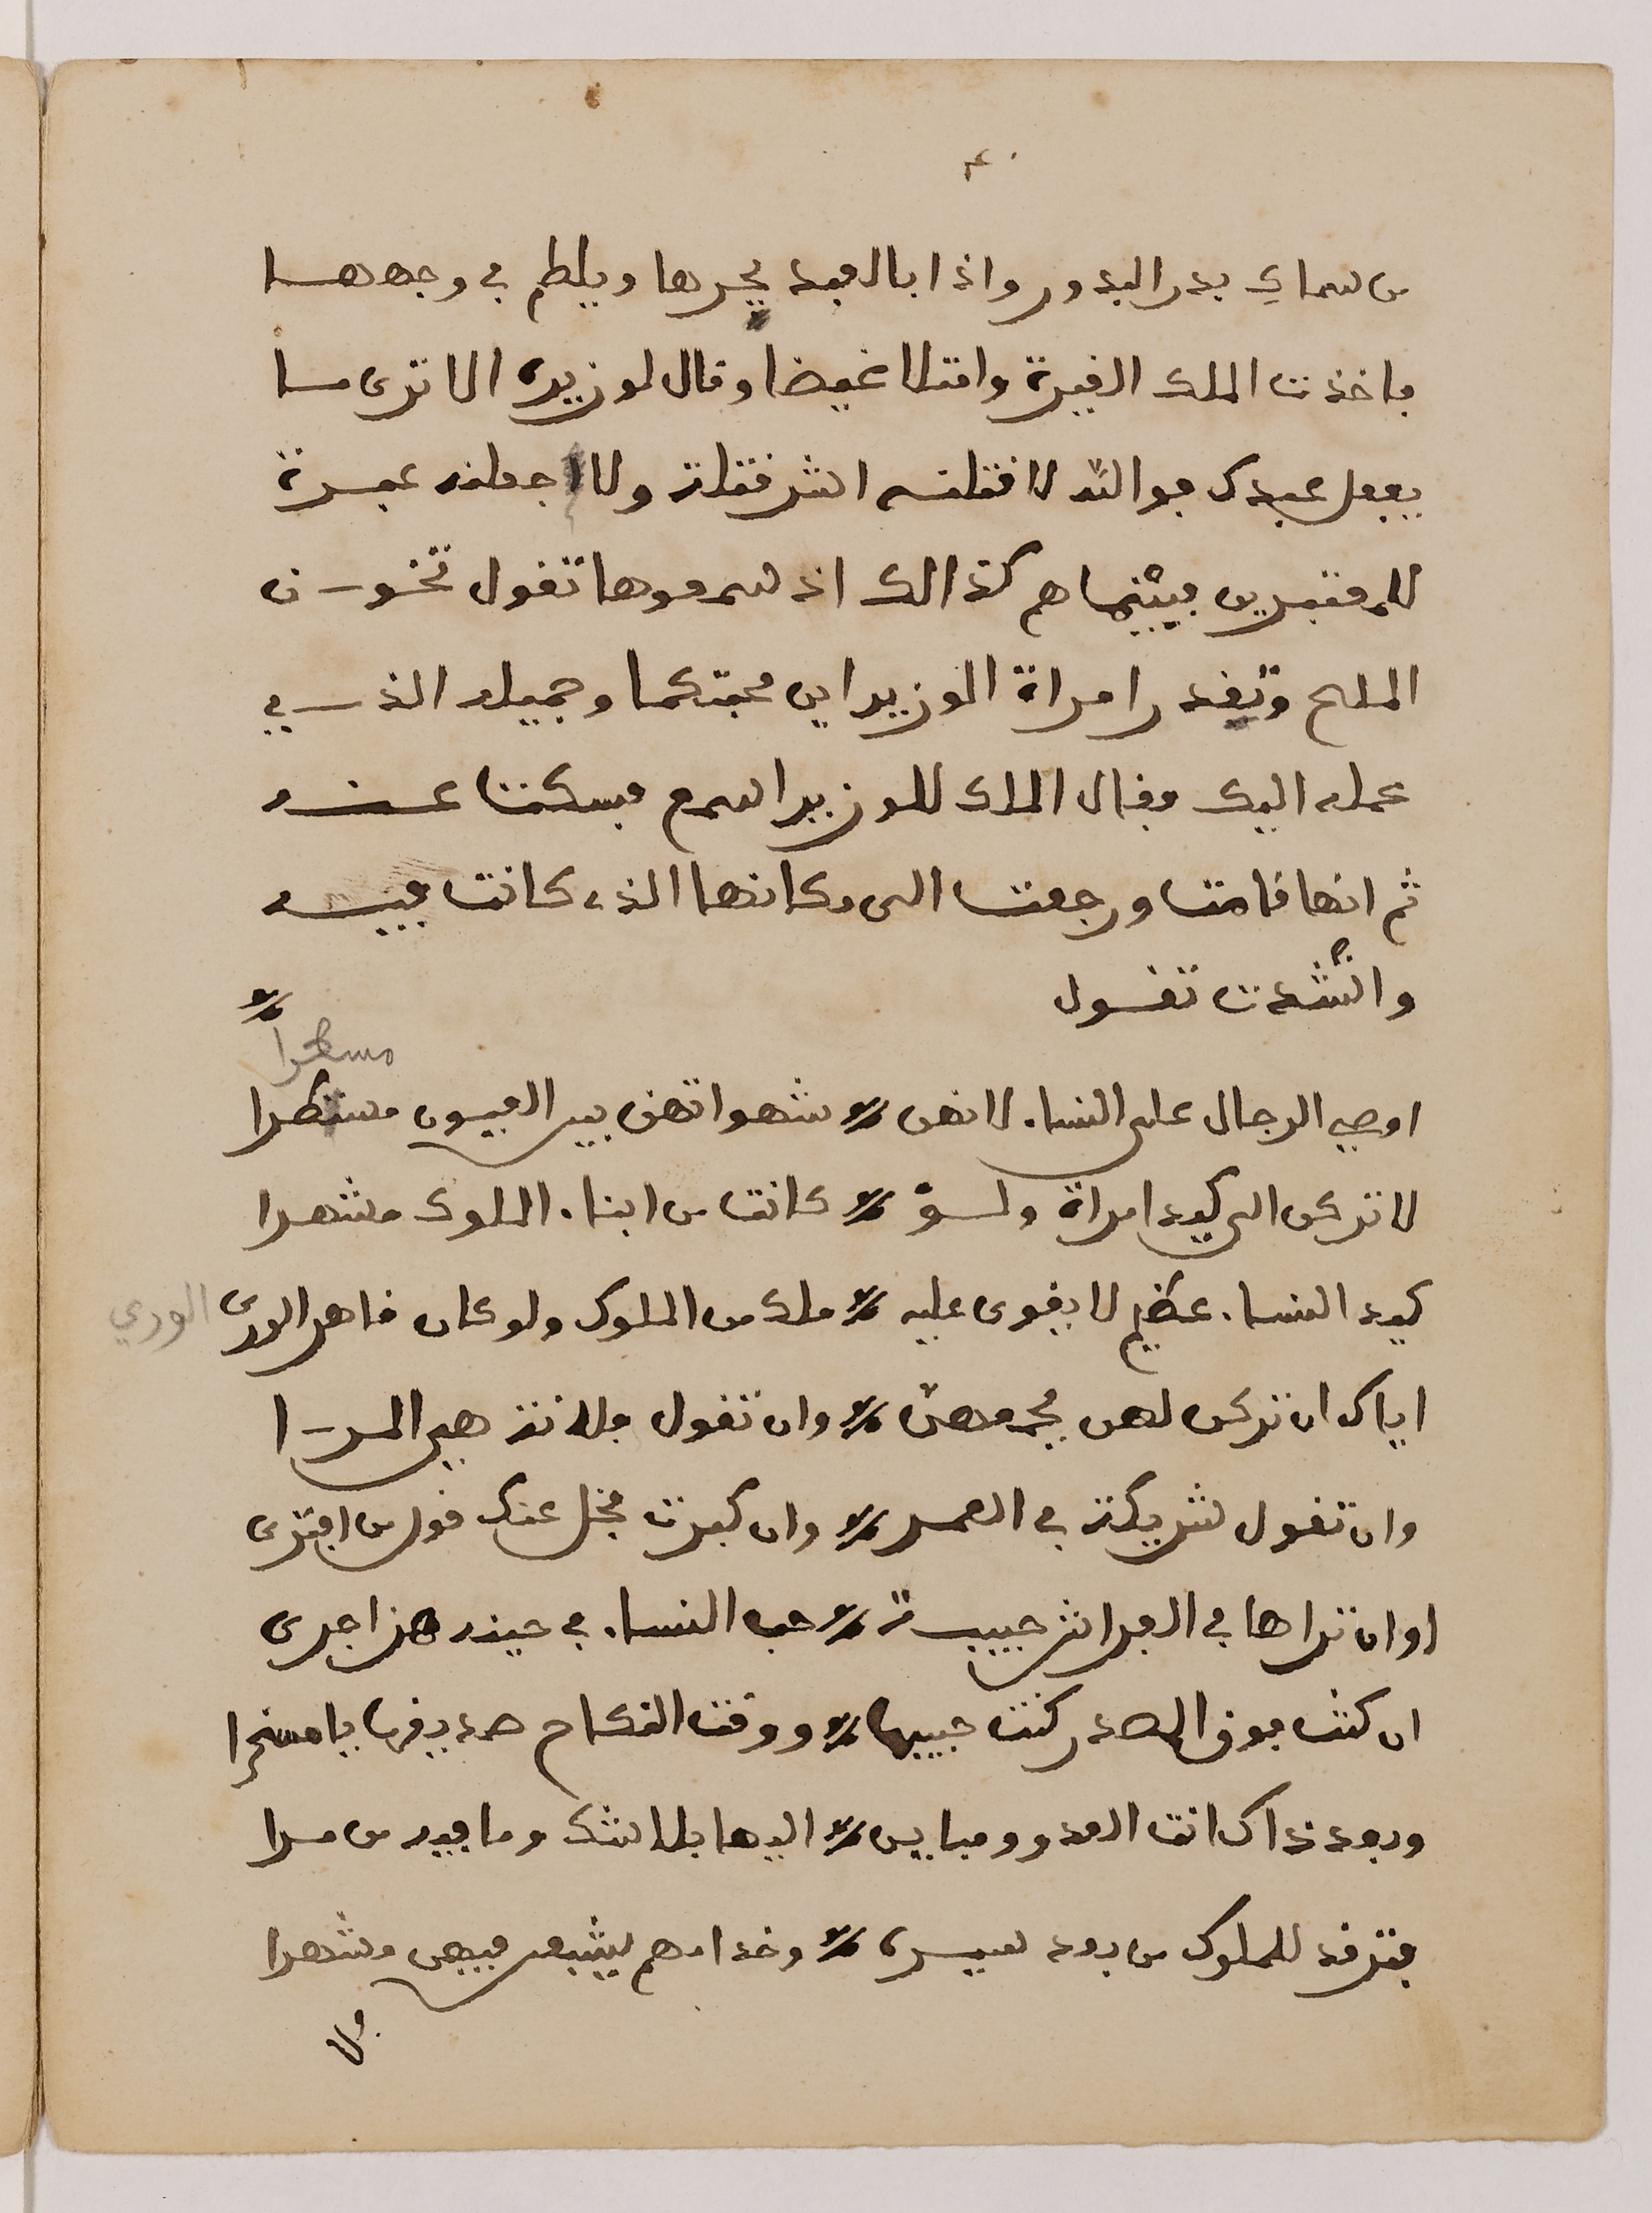 من سماي بدر البدور واذا بالعبد يجرها ويلطم في وجهها
فاخذت الملك الغيرة وامتلا غيضا وقال لوزيره الا ترى ما
يفعل عبدك فوالله لاقتلنه اشر قتلة ولاجعلنه عبرة
للمعتبرين فبينما هم كذالك اذ سمعوها تقول تخون
الملح وتغدر امراة الوزير اين محبتكما وجميله الذي
عمله اليك فقال الملك للوزير اسمع فسكتا عنه
ثم انها قامت ورجعت الى مكانها الذي كانت فيه
وانشدت تقول
مسطرا
اوصي الرجال على النساء لانهن شهواتهن بين العيون مسطرا
لا تركن الى كيد امراة ولو كانت من ابناء الملوك مشهرا
كيد النساء عظيم لا يقوى عليه ملك من الملوك ولو كان قاهر الورى الوري
اياك ان تركن لهن جمعهن وان تقول فلانة هي المرا
وان تقول شريكة في العمر وان كبرت فخل عنك قول من افترى
او ان تراها في الفراش حبيبة حب النساء في حينه هذا جرى
ان كنت فوق الصدر كنت حبيبها ووقت النكاح صد يقها يا مسخرا
وبعد ذاك انت العدو ومباين اليها بلا شك وما فيه من مرا
فترقد للملوك من بعد سيده وخدامهم يشبعن فيهن مشهرا
فلا